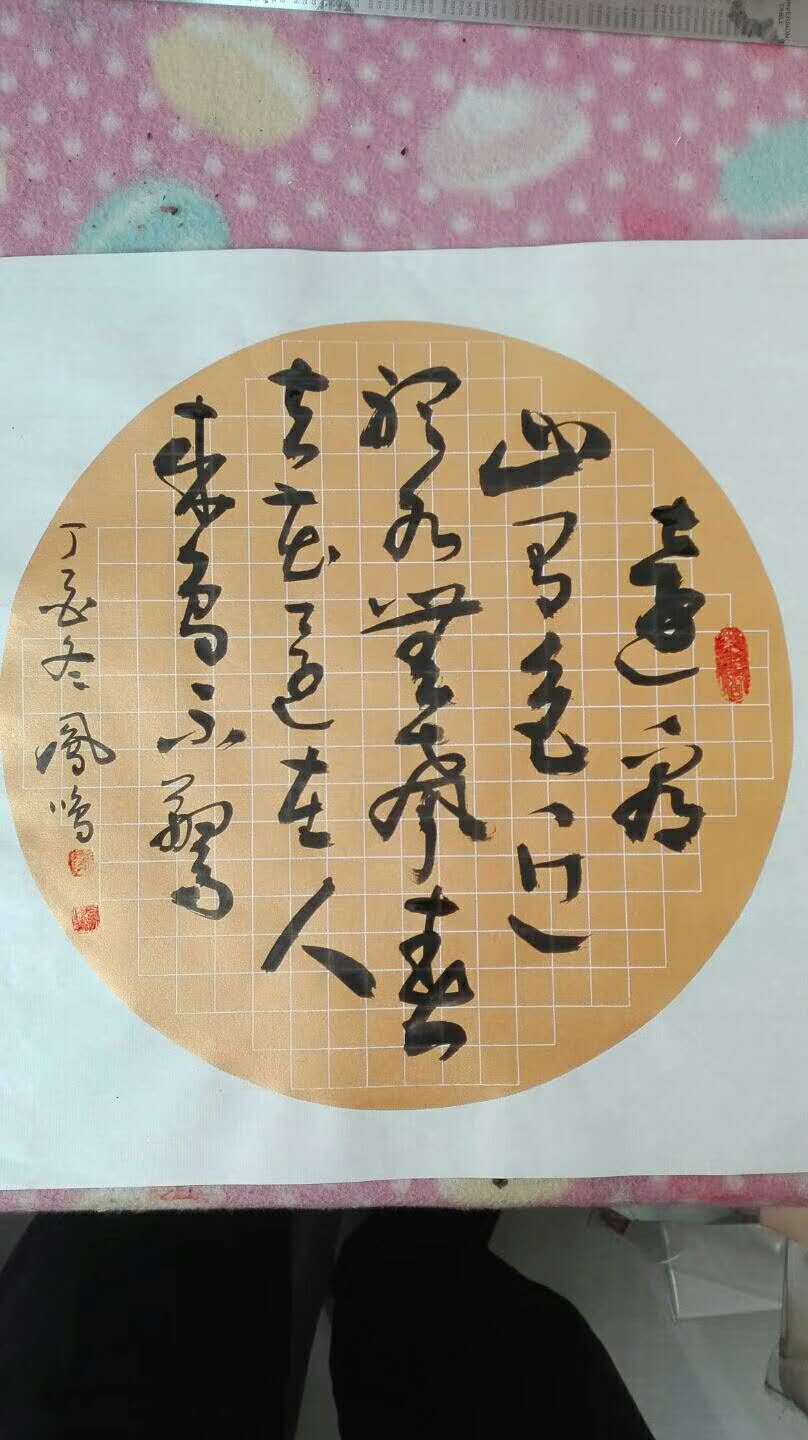 遠看
山有色近
聽水無聲春
去花還在人
來鳥不驚
丁酉冬 鳳鳴